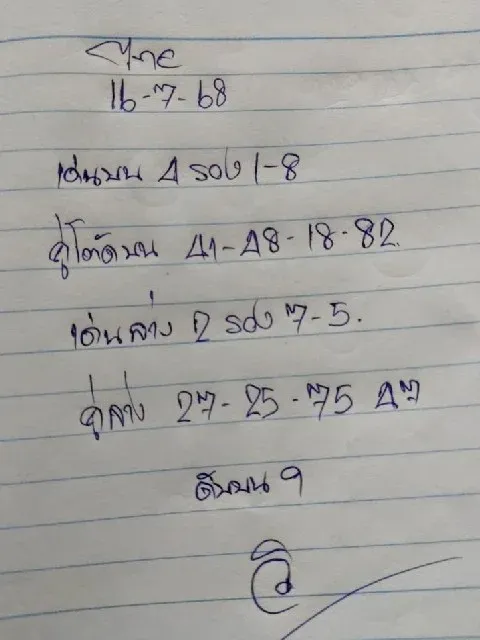 ไทย
16-7-68
เด่นบน 4 รอง 1-8
คู่โต๊ดบน 41-48-18-82
เด่นล่าง 2 รอง 7-5.
คู่ล่าง 27-25-75 47
ดับบน 9
วิ